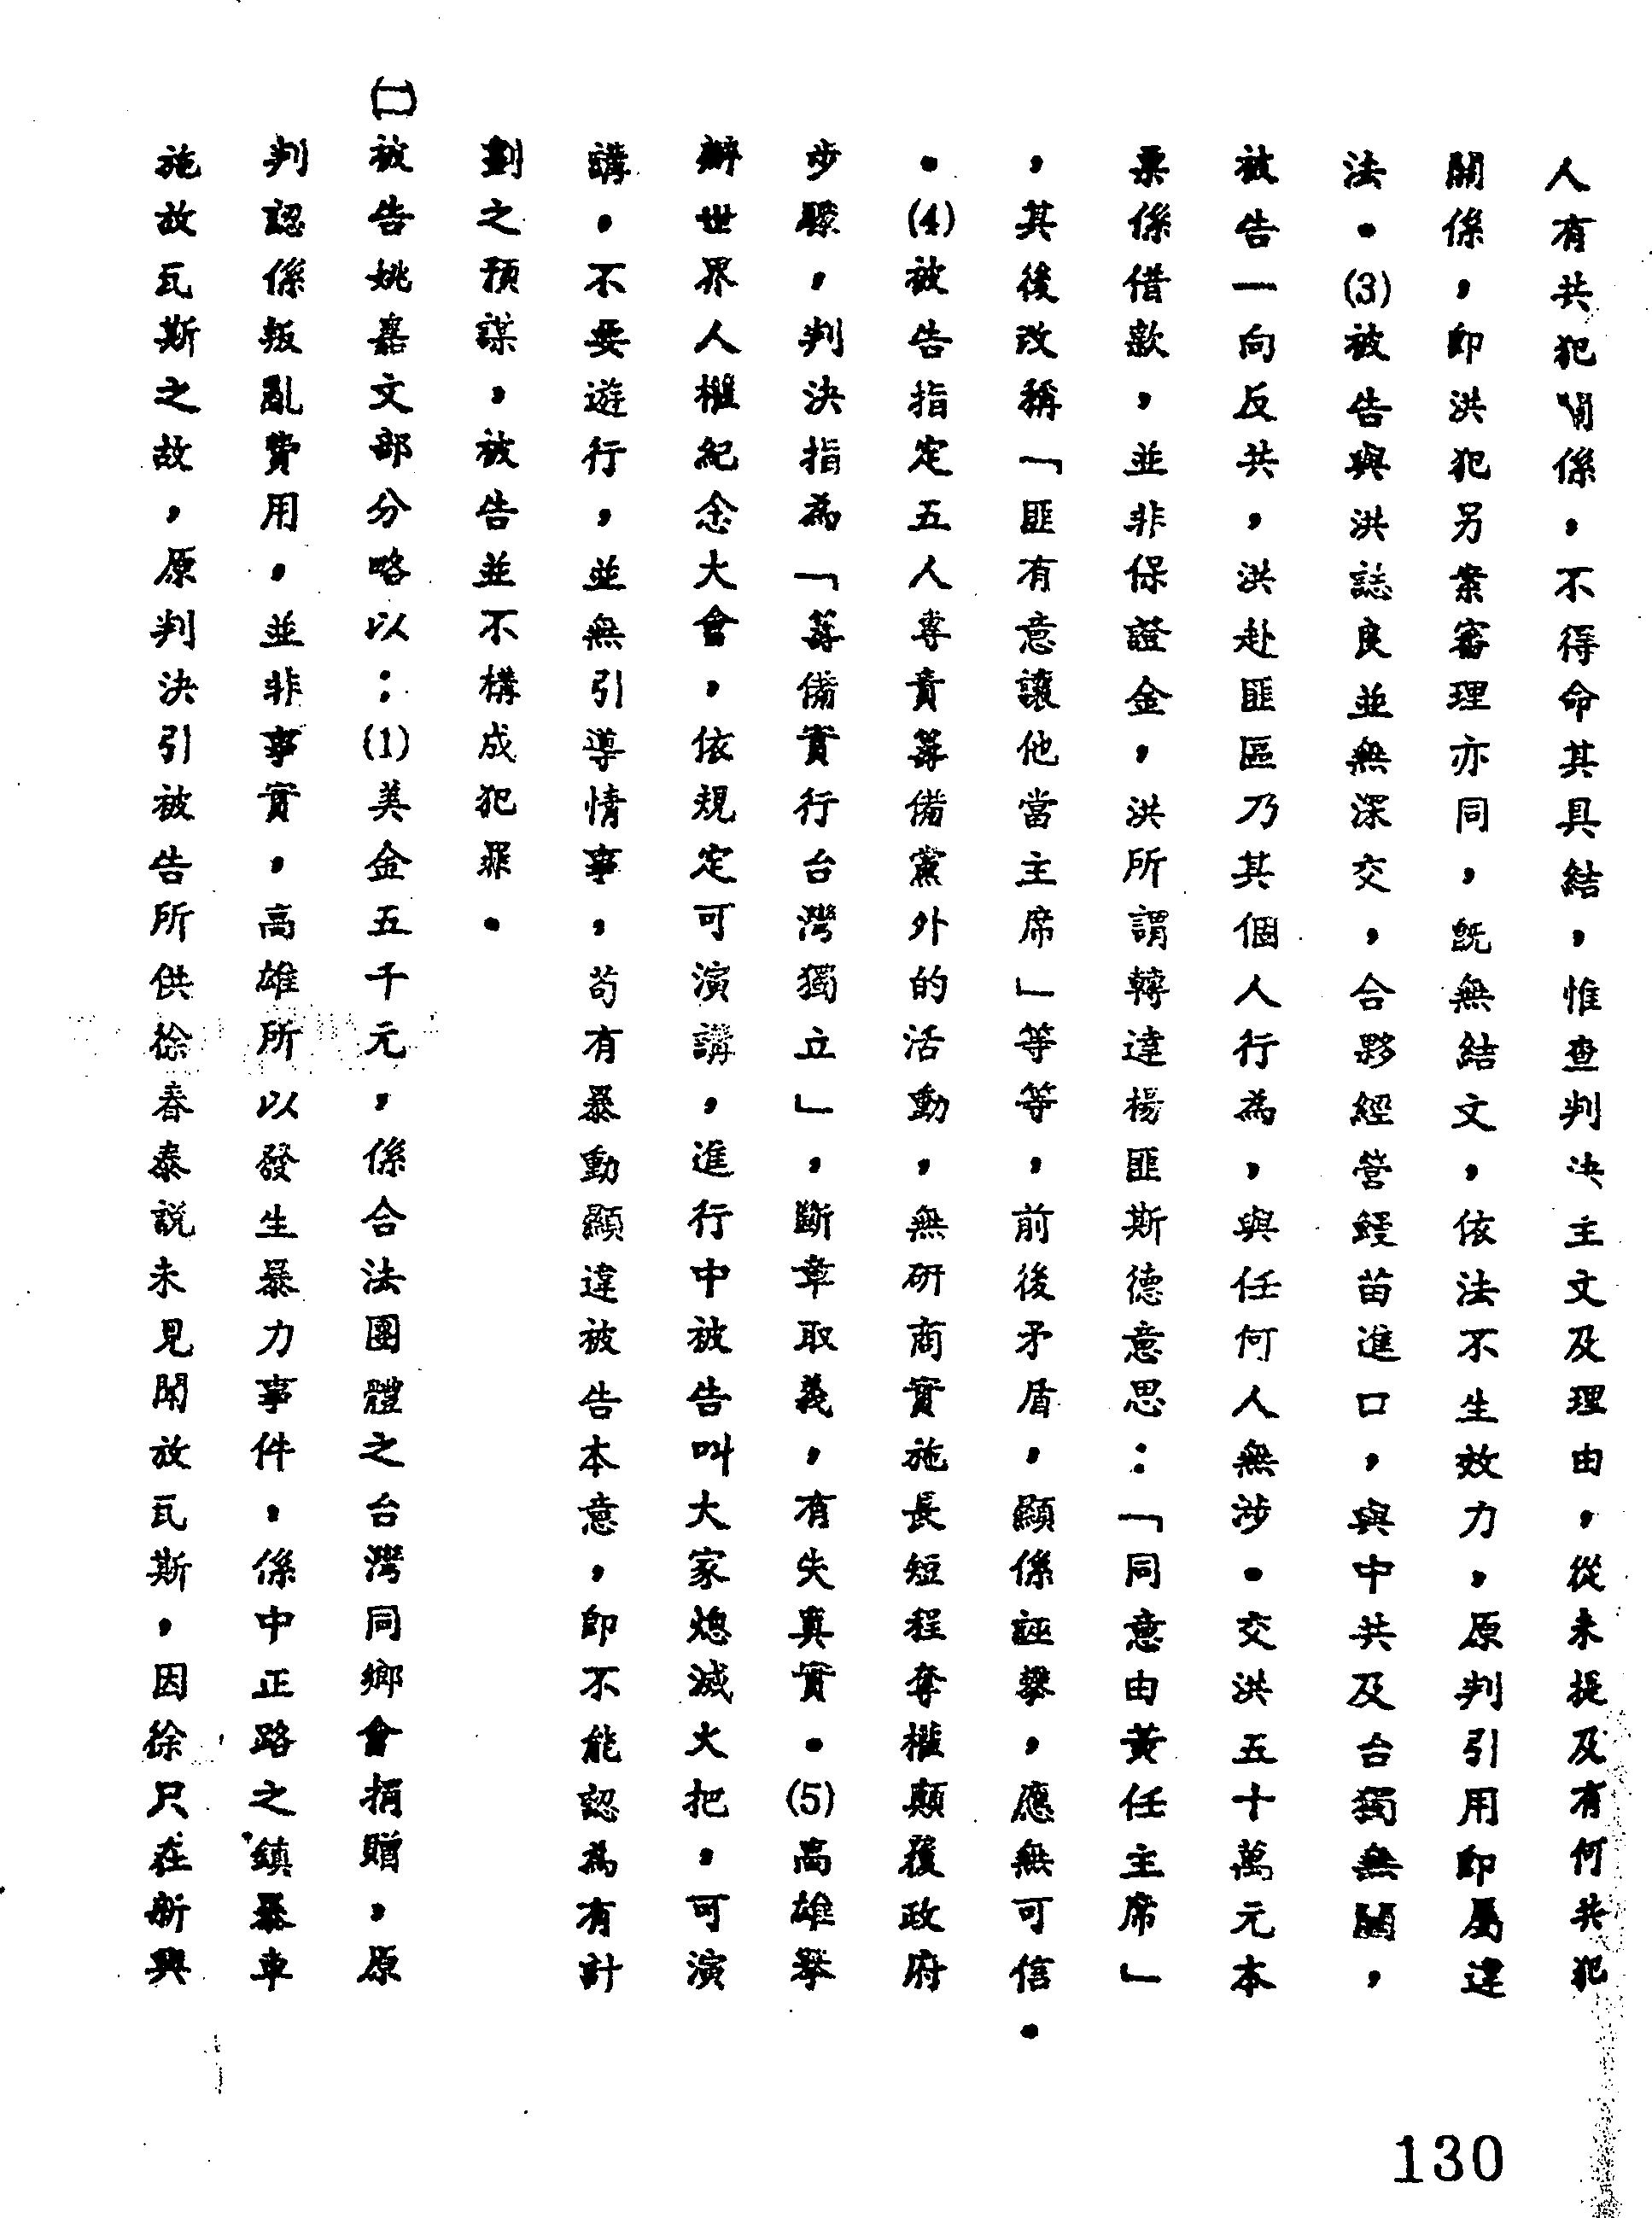 人有共犯關係，不得命其具結，惟查判決主文及理由，從未提及有何共犯
關係，即洪犯另案審理亦同，既無結文，依法不生效力，原判引用即屬違
法。(3)被告與洪誌良並無深交，合夥經營鰻苗進口，與中共及台獨無關，
被告一向反共，洪赴匪區乃其個人行為，與任何人無涉。交洪五十萬元本
票係借款，並非保證金，洪所謂轉達楊匪斯德意思：「同意由黃任主席」
，其後改稱「匪有意讓他當主席」等等，前後矛盾，顯係誣攀，應無可信。
。(4)被告指定五人專責籌備黨外的活動，無研商實施長短程奪權顛覆政府
步驟，判決指為「籌備實行台灣獨立」，斷章取義，有失真實。(5)高雄舉
辦世界人權紀念大會，依規定可演講，進行中被告叫大家熄滅火把，可演
講，不要遊行，並無引導情事，苟有暴動顯違被告本意，即不能認為有計
劃之預謀，被告並不構成犯罪。
㈡被告姚嘉文部分略以：(1)美金五千元，係合法團體之台灣同鄉會捐贈，原
判認係叛亂費用，並非事實，高雄所以發生暴力事件，係中正路之鎮暴車
施放瓦斯之故，原判決引被告所供徐春泰說未見開放瓦斯，因徐只在新興
130